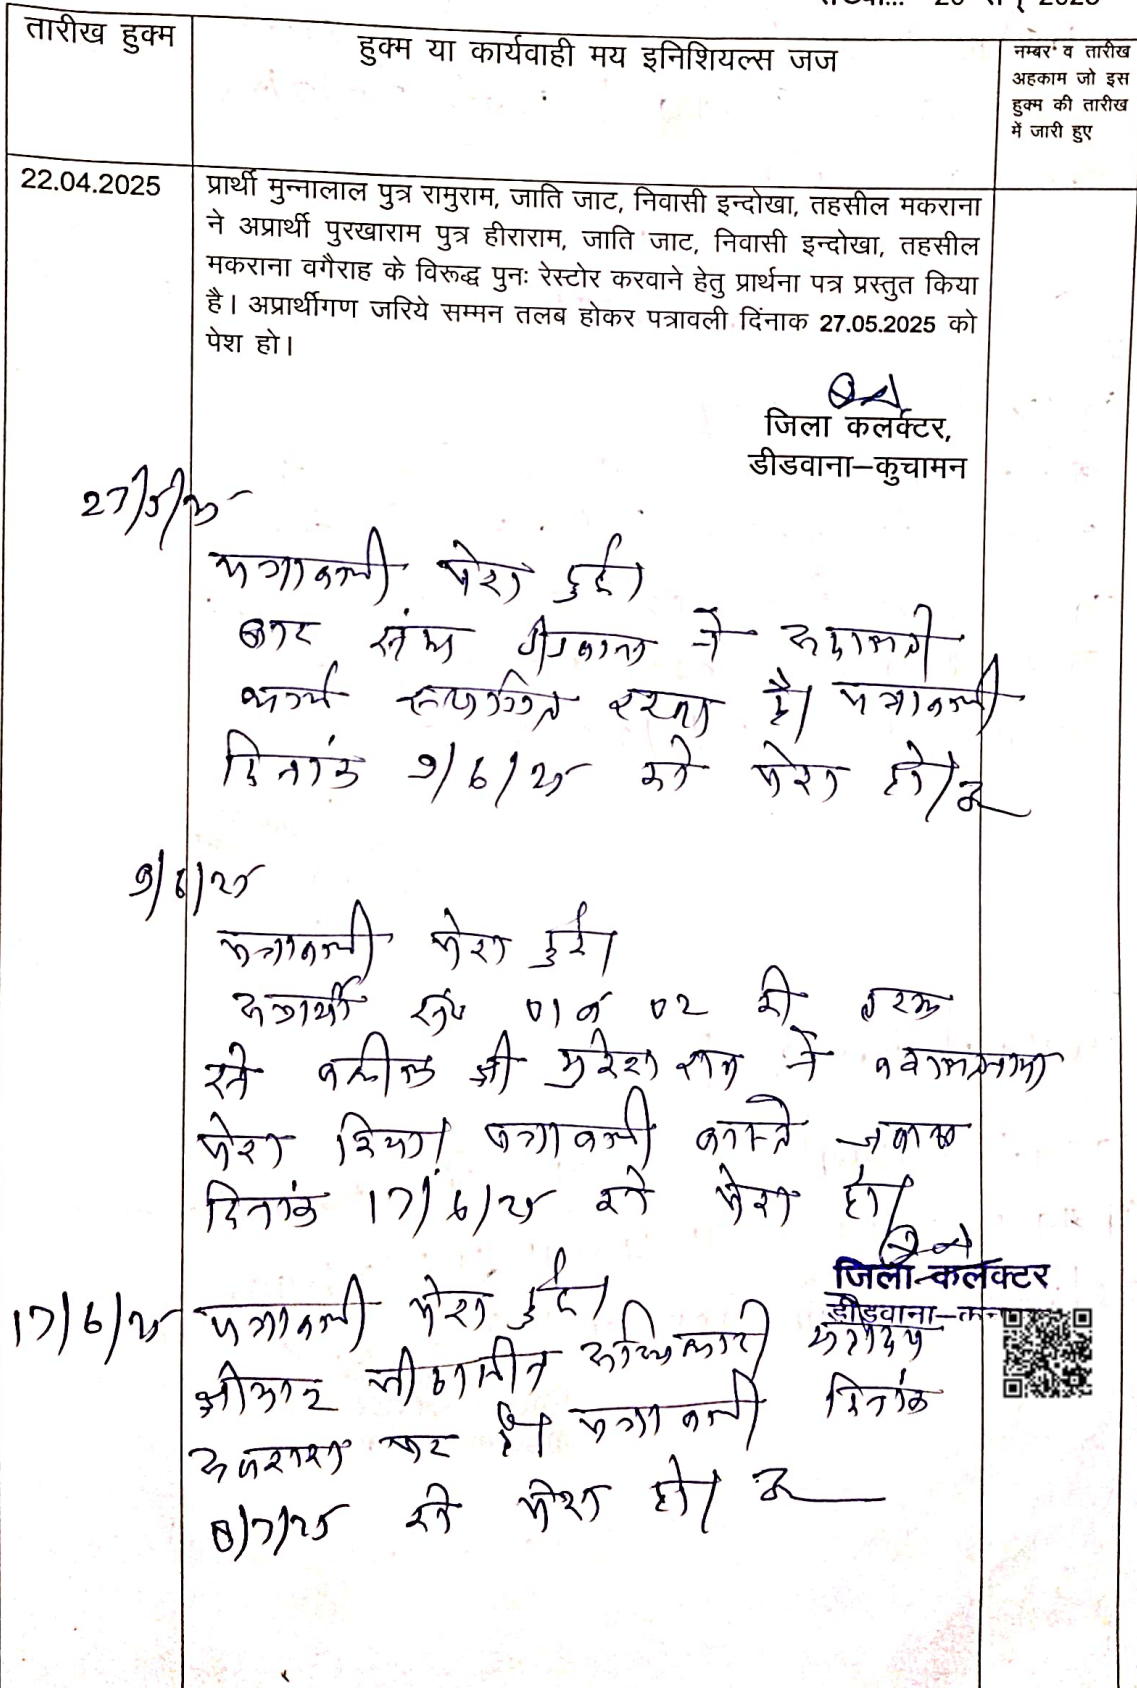 2025
तारीख हुक्म
हुक्म या कार्यवाही मय इनिशियल्स जज
नम्बर व तारीख
अहकाम जो इस
हुक्म की तारीख
में जारी हुए
22.04.2025
प्रार्थी मुन्नालाल पुत्र रामुराम, जाति जाट, निवासी इन्दोखा, तहसील मकराना
ने अप्रार्थी पुरखाराम पुत्र हीराराम, जाति जाट, निवासी इन्दोखा, तहसील
मकराना वगैराह के विरूद्ध पुनः रेस्टोर करवाने हेतु प्रार्थना पत्र प्रस्तुत किया
है। अप्रार्थीगण जरिये सम्मन तलब होकर पत्रावली दिंनाक 27.05.2025 को
पेश हो।
जिला कलक्टर,
डीडवाना–कुचामन
27/5/25
पत्रावली पेश हुई।
बार संघ डीडवाना ने अदालती
कार्य स्थगित रखा है। पत्रावली
दिनांक 9/6/25 को पेश हो।
9/6/25
पत्रावली पेश हुई।
अप्रार्थी सं॰ 01 व 02 की तरफ
से वकील श्री सुरेश राम ने वकालतनामा
पेश किया। पत्रावली वास्ते जवाब
दिनांक 17/6/25 को पेश हो।
जिला कलक्टर
डीडवाना–
17/6/25
पत्रावली पेश हुई।
श्रीमान पीठासीन अधिकारी महोदय
अवकाश पर है। पत्रावली दिनांक
8/7/25 को पेश हो।